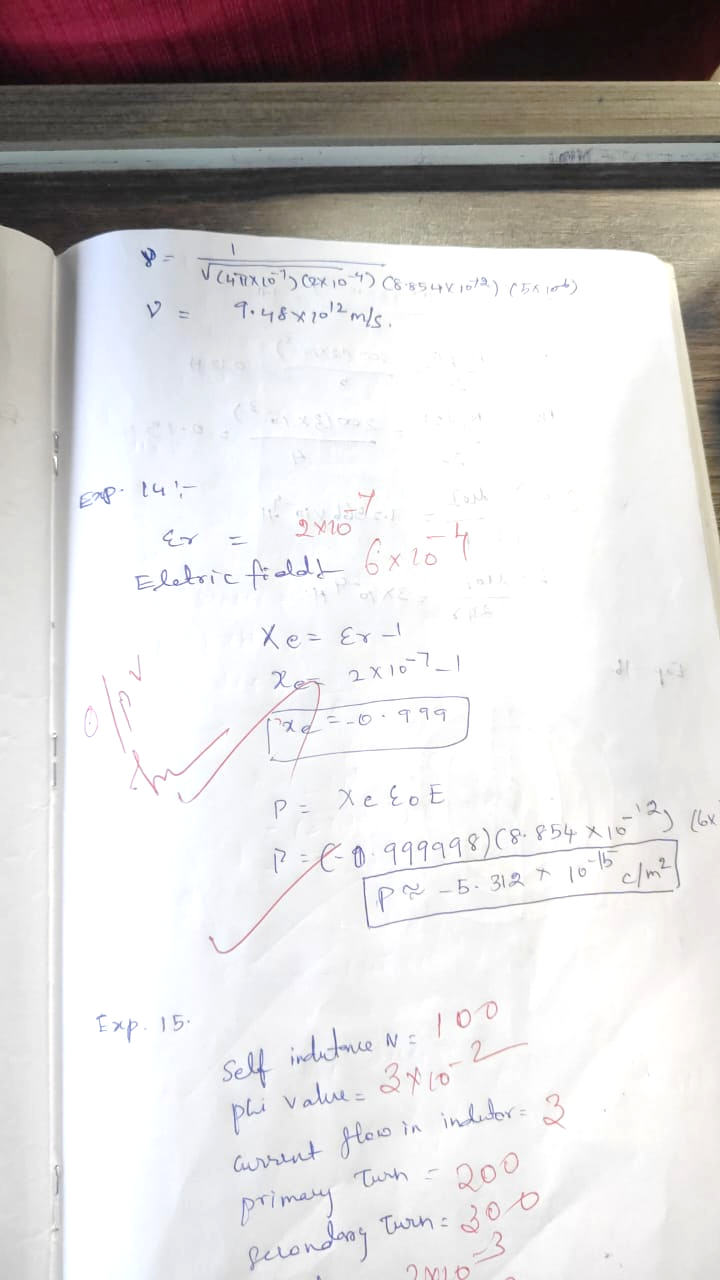 v = 1 / √(4π×10⁻⁷)(2×10⁻⁴)(8.854×10⁻¹²)(5×10⁻⁶)
v = 9.48×10¹² m/s.
Exp. 14:-
Er = 2×10⁻⁷
Eletric fieldt 6×10⁻⁴
Xe = Er-1
Xe = 2×10⁻⁷-1
Xe = -0.999
O/P
P = Xe ε₀ E
P = (-0.999998)(8.854×10⁻¹²) (6×
P ≈ -5.312 × 10⁻¹⁵ c/m²
Exp. 15.
Self indutance N = 100
phi value = 3×10⁻²
current flow in indutor = 3
primary Turn = 200
secondary Turn = 300
2×10⁻³